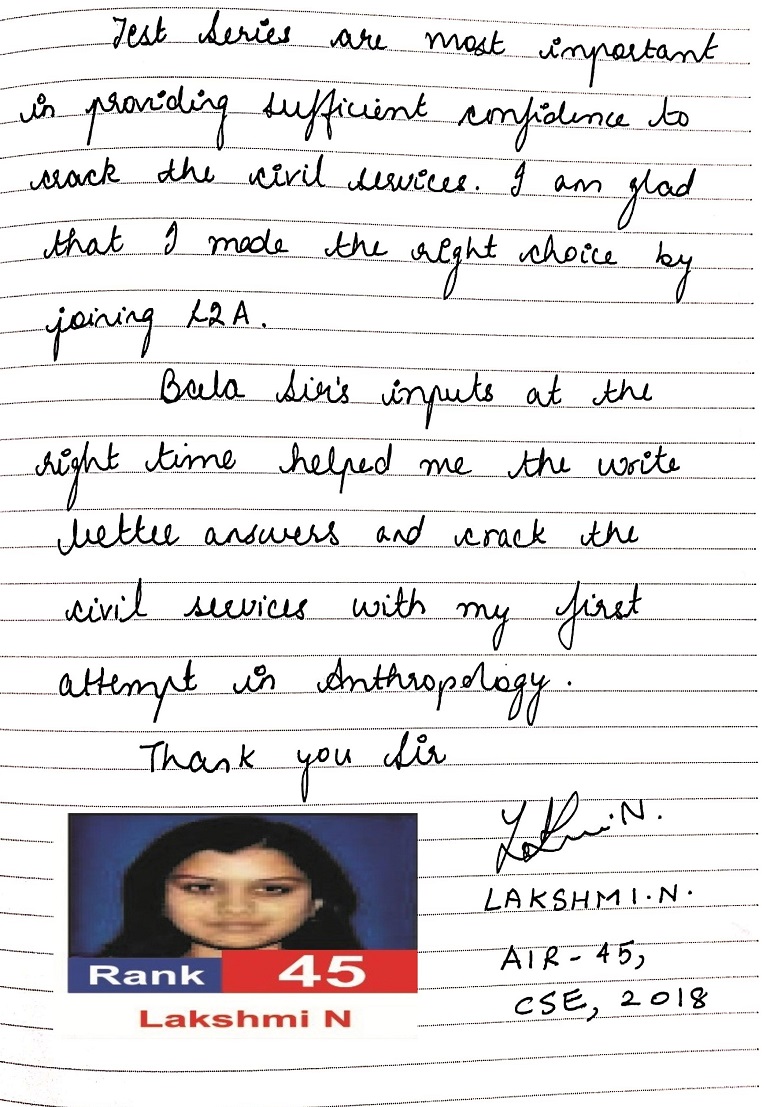 Test Series are most important
in providing sufficient confidence to
crack the civil services. I am glad
that I made the right choice by
joining L2A.
Bala Sir's inputs at the
right time helped me the write
better answers and crack the
civil services with my first
attempt in Anthropology.
Thank you Sir
Lakshmi N.
LAKSHMI.N.
AIR - 45,
CSE, 2018
Rank 45
Lakshmi N